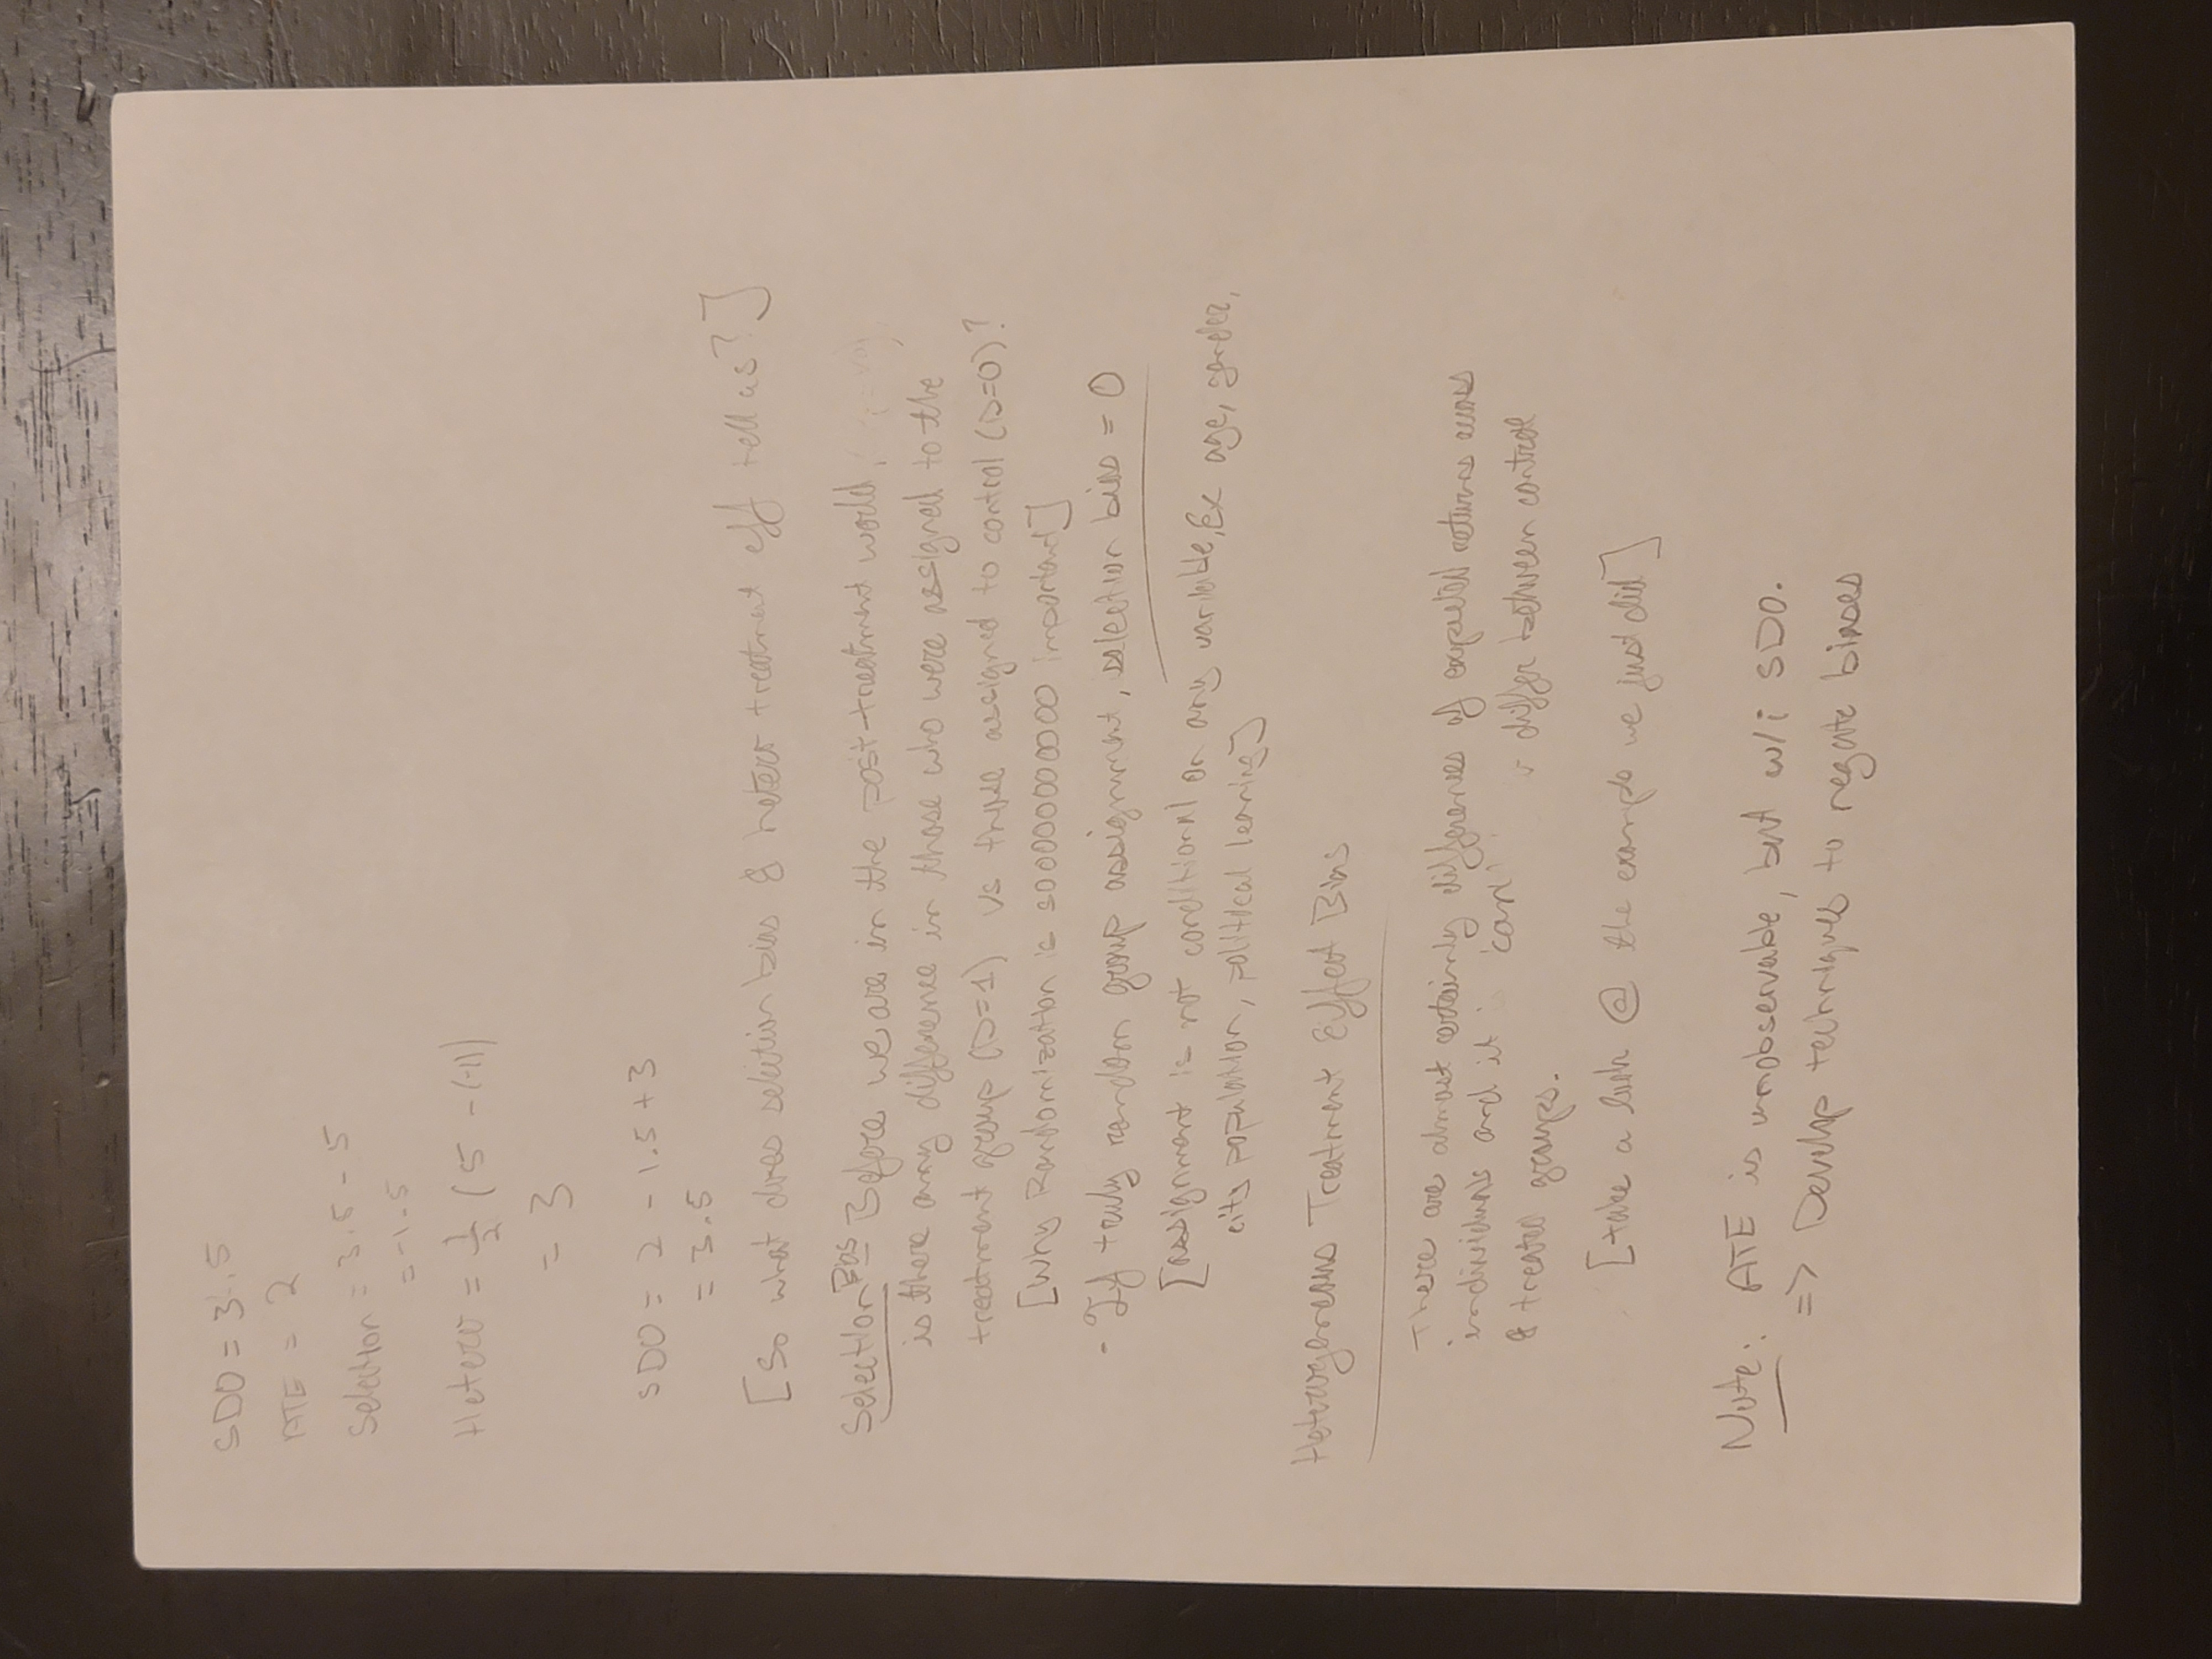 SDO = 3.5
ATE = 2
Selection = 3.5 - 5
= -1.5
Hetero = 1/2 (5 - (-1))
= 3
SDO = 2 - 1.5 + 3
= 3.5
[So what does selection bias & hetero treatment eff tell us?]
Selection Bias Before we are in the post-treatment world,
is there any difference in those who were assigned to the
treatment group (D=1) vs those assigned to control (D=0)?
[Why Randomization is sooooooooooo important]
- If truly random group assignment, selection bias = 0
[assignment is not conditional on any variable, Ex age, gender,
city population, political leaning]
Heterogeneous Treatment Effect Bias
There are almost certainly differences of expected returns across
individuals and it can differ between control
& treated groups.
[take a look @ the example we just did]
Note: ATE is unobservable, but w/i SDO.
=> Develop techniques to negate biases